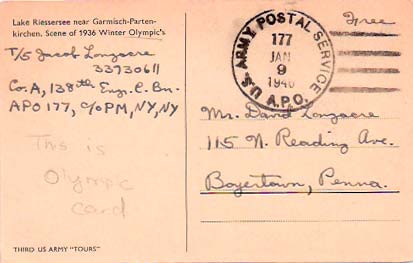 Lake Riessersee near Garmisch-Parten-
kirchen. Scene of 1936 Winter Olympic's
T/5 Jacob Longacre
33730611
Co. A, 138th Eng. C. Bn.
APO 177, c/o PM, NY, NY
This is
Olympic
card
THIRD US ARMY "TOURS"
Free
U.S. ARMY POSTAL SERVICE
177
JAN
9
1946
A.P.O.
Mr. David Longacre
115 N. Reading Ave.
Boyertown, Penna.